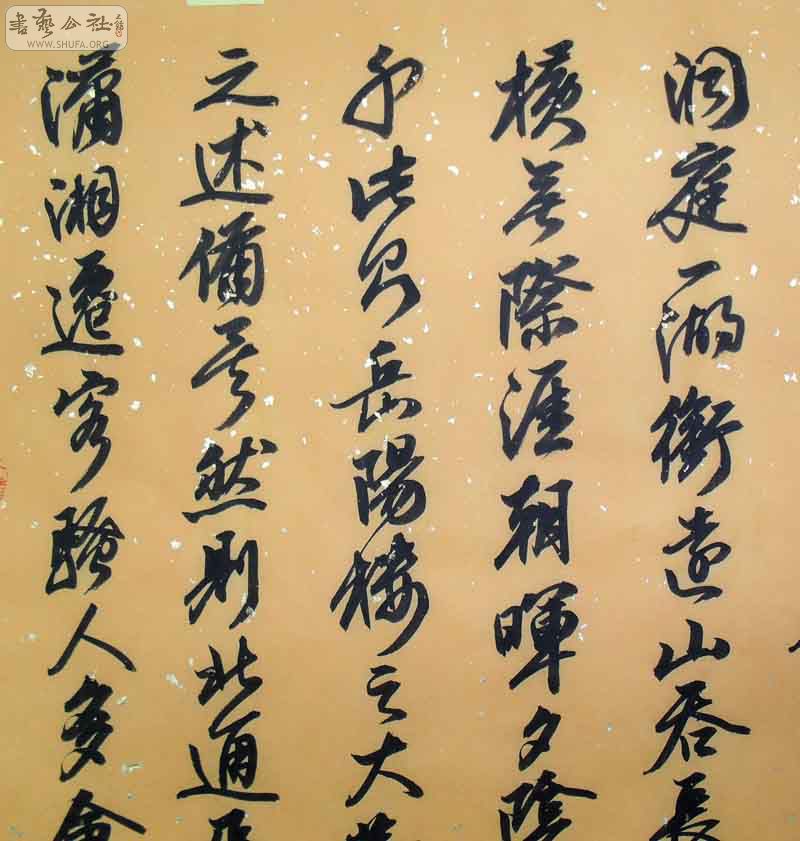 書藝公社
WWW.SHUFA.ORG
洞庭一湖銜遠山吞長
橫無際涯朝暉夕陰
千此則岳陽樓之大
之述備矣然則北通
瀟湘遷客騷人多會